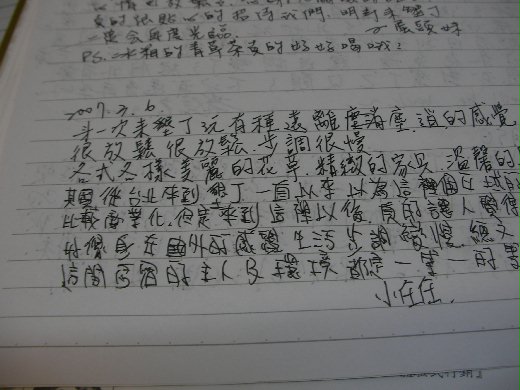 真的很貼心的招待我們.明對來墾丁
一定會再度光臨.
PS.冰箱的青草茶真的好好喝哦!
2007.3.6
第一次來墾丁玩有種遠離塵消塵.逍的感覺
很放鬆很放鬆步調很慢
各式各樣美麗的花草.精緻的家具.溫馨的
其實從台北來到墾丁一直以來以為這個
比較商業化.但是來到這裡以後真的讓人覺得
好像身在國外的感覺生活步調緩慢總之
這間民宿的主人及環境都是一等一的
小任任.